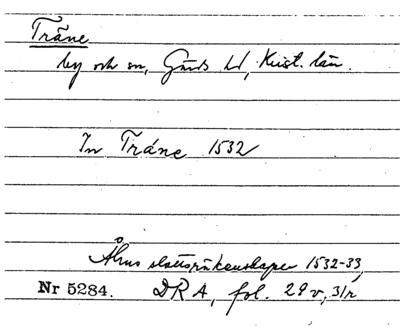 Träne
by och sn, Gärds hd, Krist. län.
In Tráne 1532
Åhus slottsräkenskaper 1532-33,
Nr 5284. DRA, fol. 29v, 31r